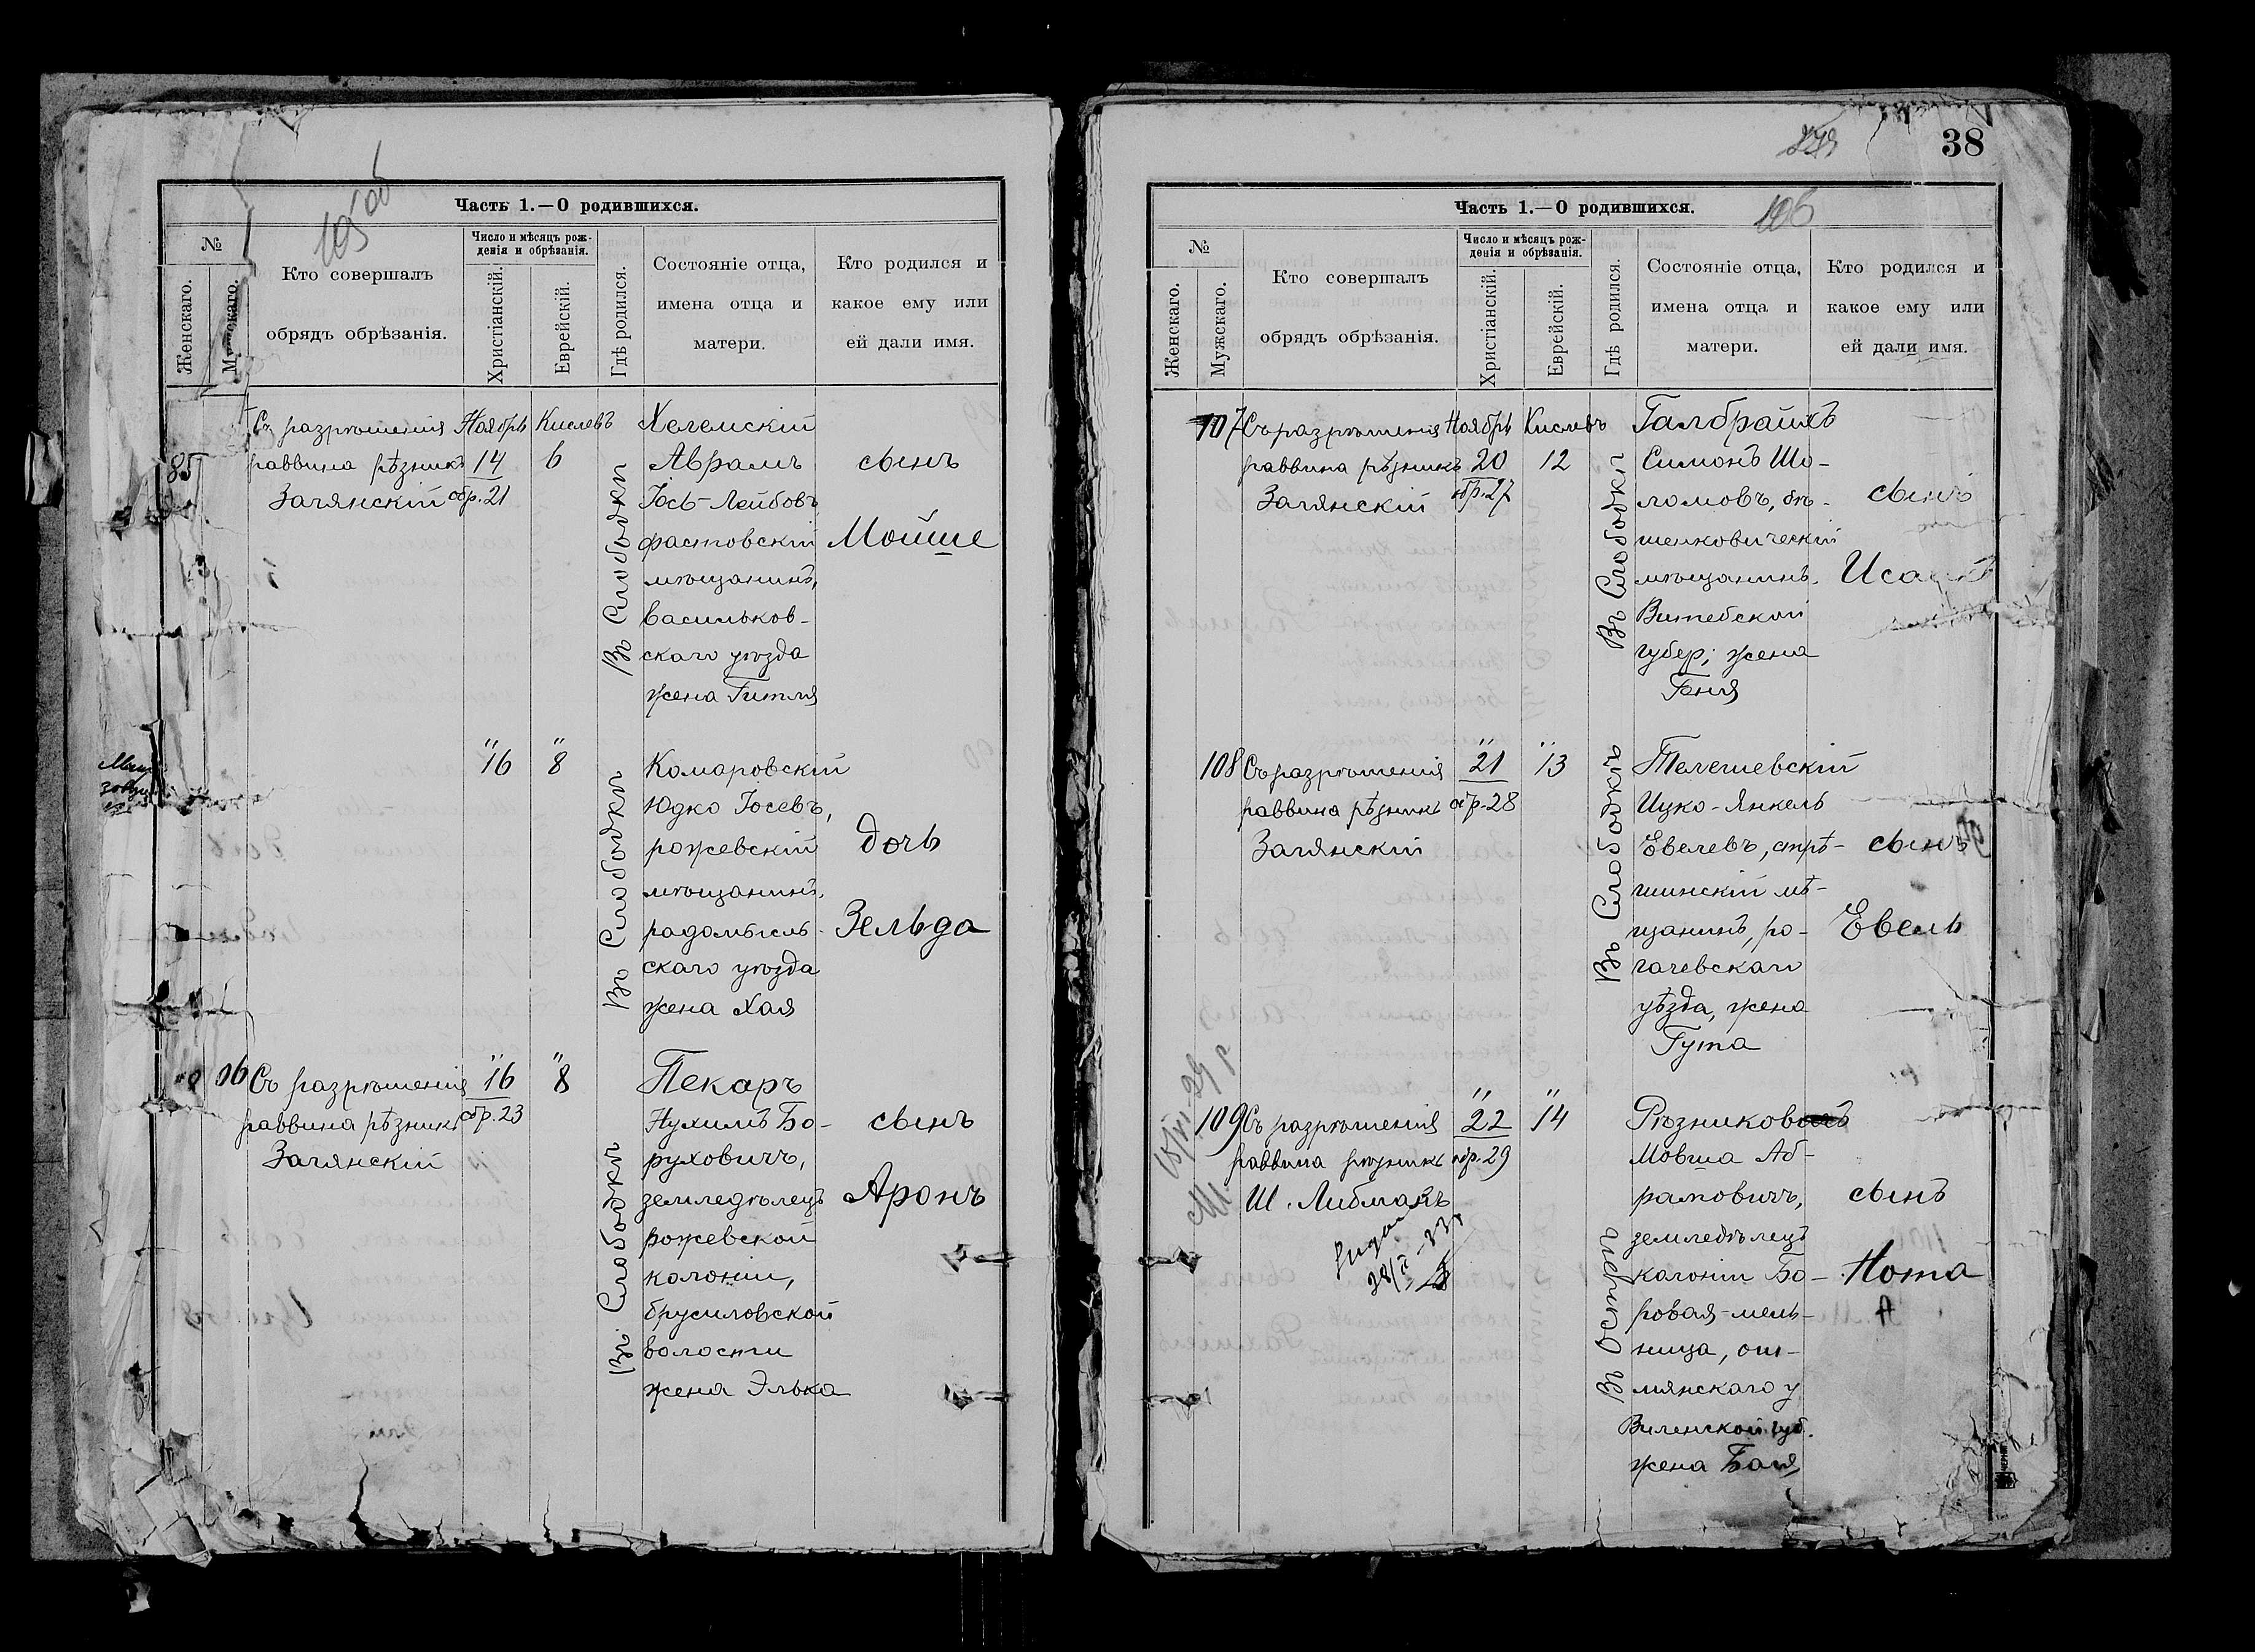 105 об
Часть 1.—О родившихся.
№
Женскаго.
Кто совершалъ
обрядъ обрѣзанія.
Число и мѣсяцъ рож-
денія и обрѣзанія.
Христіанскій.
Еврейскій.
Гдѣ родился.
Состояніе отца,
имена отца и
матери.
Кто родился и
какое ему или
ей дали имя.
85
Съ разрѣшенія
раввина рѣзникъ
Заглянскій
Ноябрь
14
обр. 21
Кислевъ
6
Въ Слободкѣ
Хелемскій
Аврамъ
Іось-Лейбовъ
фастовскій
мѣщанинъ,
васильков-
скаго уѣзда
жена Гитля
сынъ
Мойше
" 16
" 8
Въ Слободкѣ
Комаровскій
Юдко Іосевъ,
рожевскій
мѣщанинъ,
радомысль-
скаго уѣзда
жена Хая
дочь
Зельда
06
Съ разрѣшенія
раввина рѣзникъ
Заглянскій
" 16
обр. 23
" 8
Въ Слободкѣ
Пекаръ
Нухимъ Бо-
руховичъ,
земледѣлецъ
рожевской
колоніи,
брусиловской
волости
жена Элька
сынъ
Аронъ
38
106
Часть 1.—О родившихся.
№
Женскаго.
Мужскаго.
Кто совершалъ
обрядъ обрѣзанія.
Число и мѣсяцъ рож-
денія и обрѣзанія.
Христіанскій.
Еврейскій.
Гдѣ родился.
Состояніе отца,
имена отца и
матери.
Кто родился и
какое ему или
ей дали имя.
107
Съ разрѣшенія
раввина рѣзникъ
Заглянскій
Ноябрь
20
обр. 27
Кислевъ
12
Въ Слободкѣ
Галбрайхъ
Симонъ Шо-
ломовъ, бѣ-
шенковическій
мѣщанинъ,
Витебской
губер; жена
Геня
сынъ
108
Съ разрѣшенія
раввина рѣзникъ
Заглянскій
" 21
обр. 28
" 13
Въ Слободкѣ
Телешевскій
Ицко-Янкель
Евелевъ, стрѣ-
шинскій мѣ-
щанинъ, ро-
гачевскаго
уѣзда, жена
Гута
сынъ
Евель
109
Съ разрѣшенія
раввина рѣзникъ
Ш. Либманъ
" 22
обр. 29
" 14
Рѣзниково
Мовша Аб-
рамовичъ,
земледѣлецъ
колоніи Бо-
ровая-мель-
ница, ош-
мянскаго у
Виленской губ.
жена Бася
сынъ
Нота